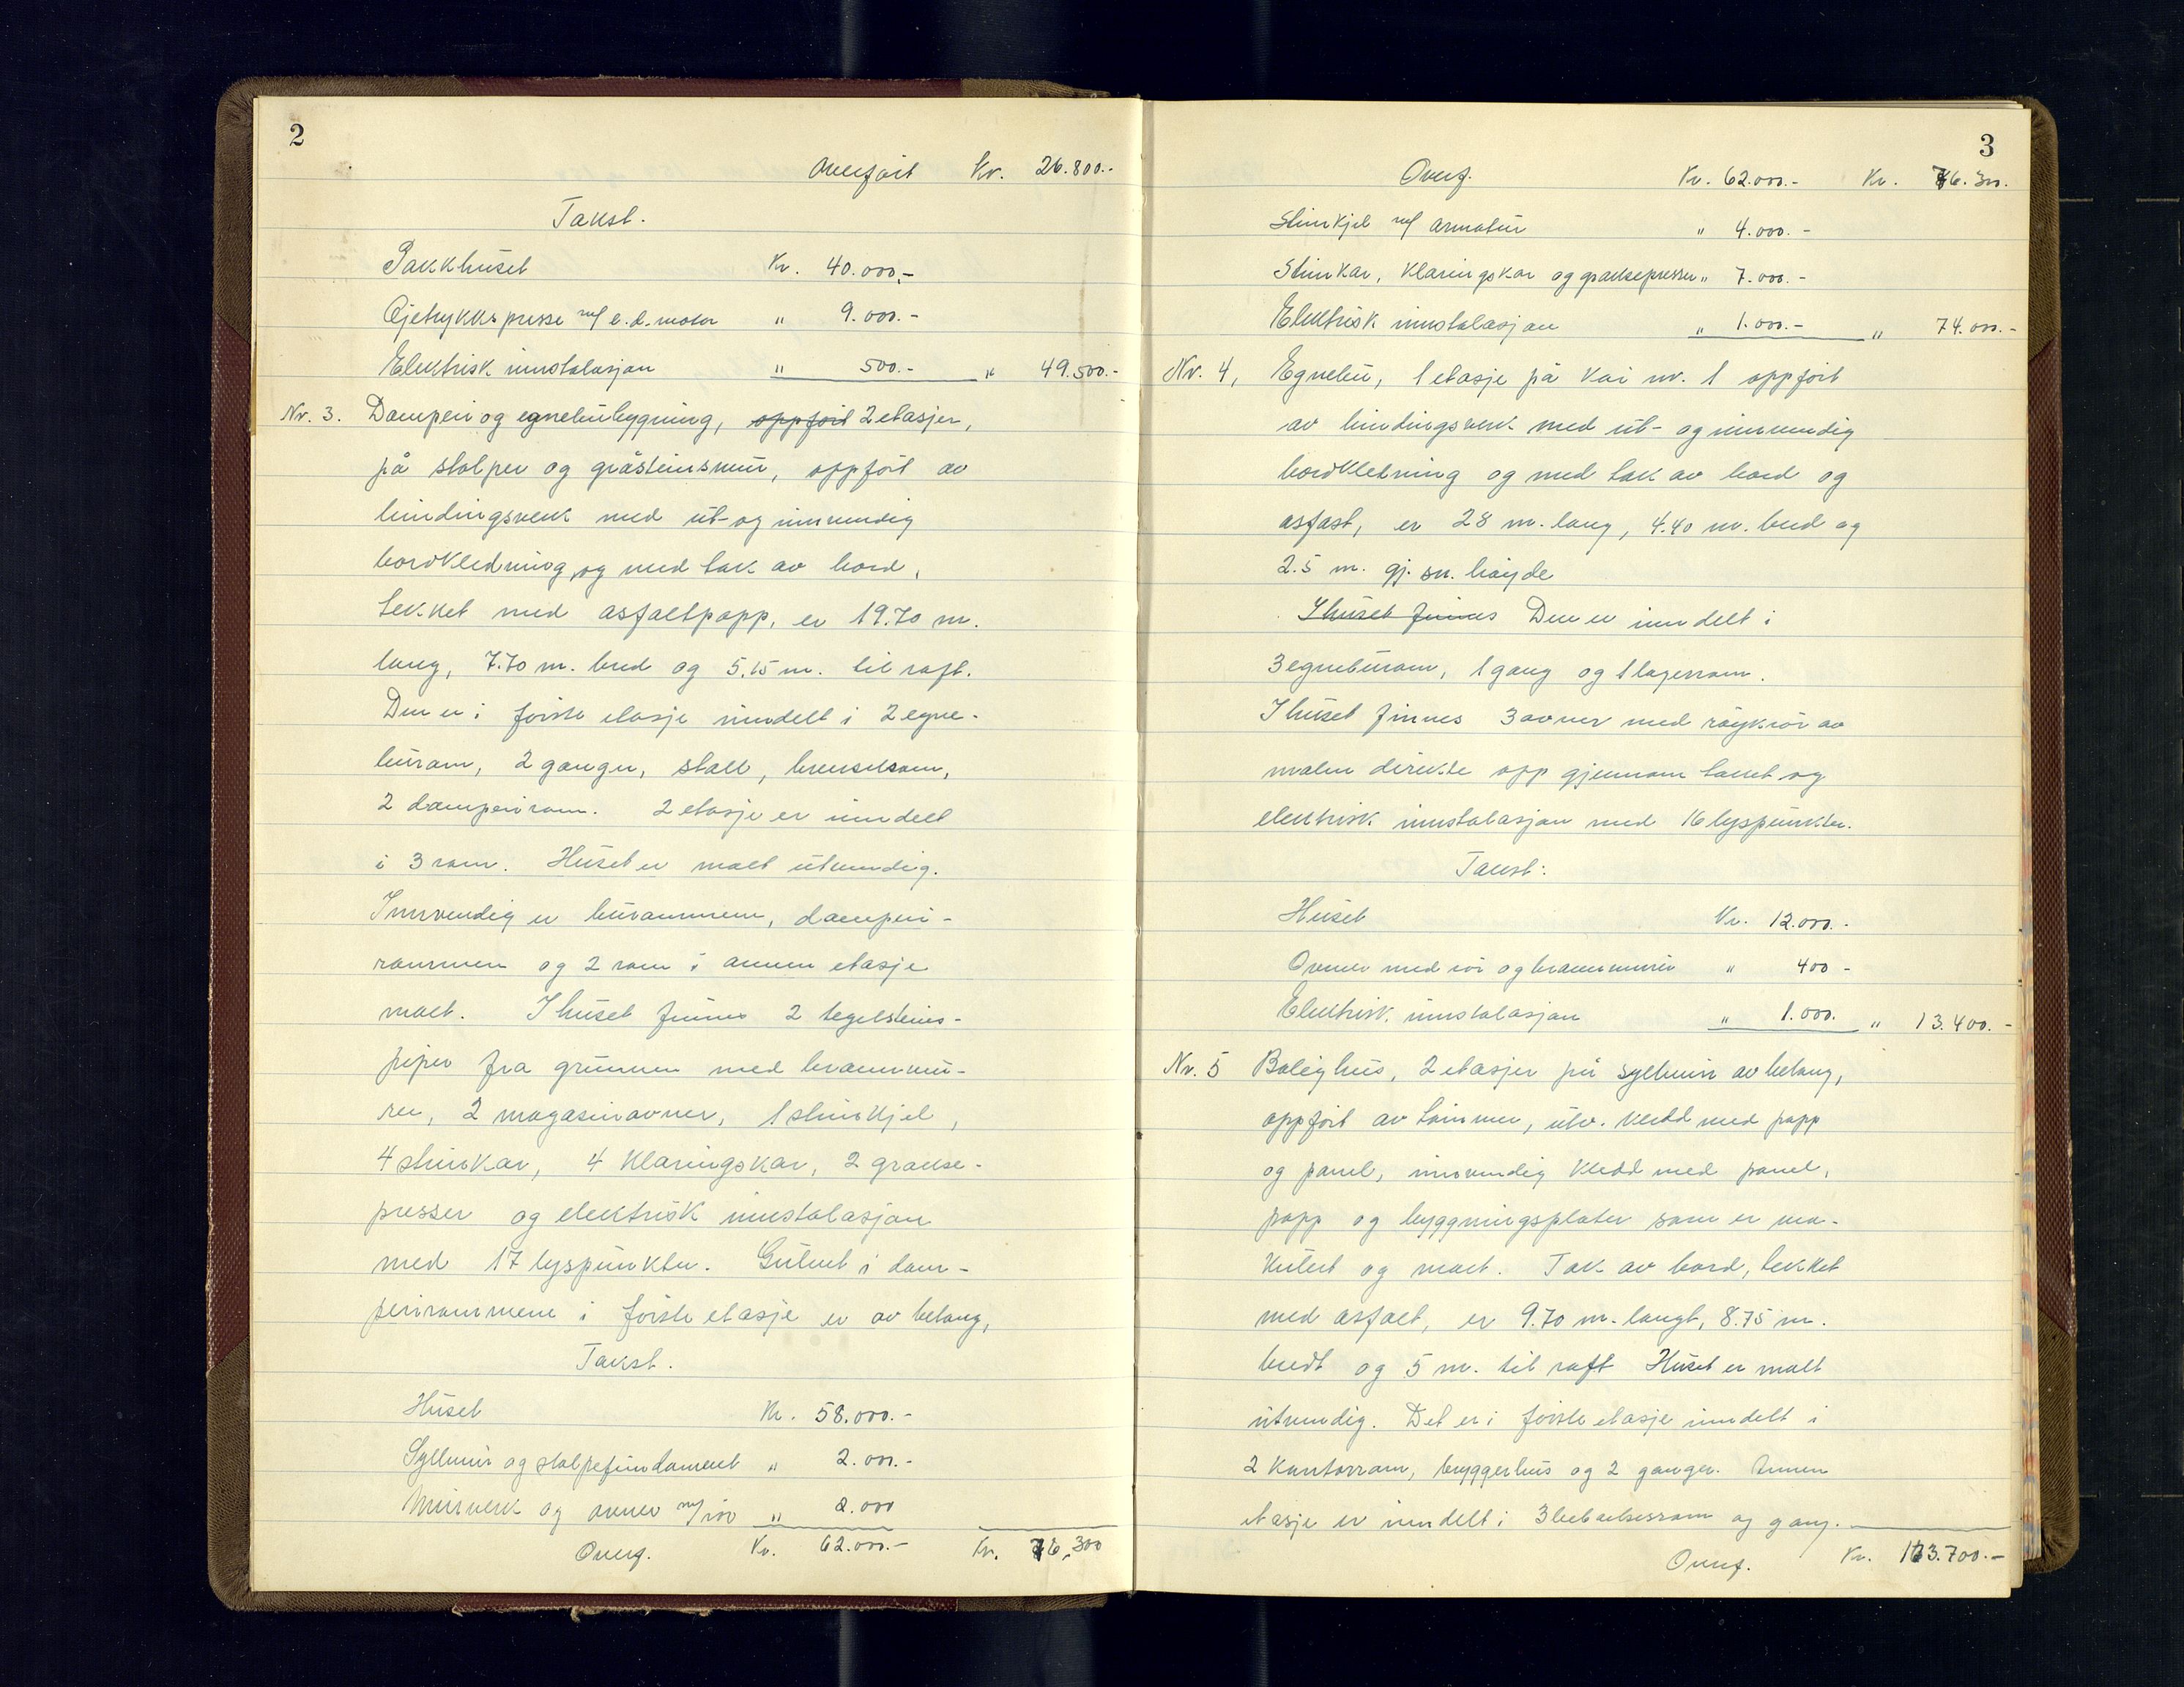 2
Overført Kr. 26.800.-
Takst.
Pakkhuset Kr. 40.000,-
Oljetrykkspresse m/ e.d. motor " 9.000.-
Elektrisk innstalasjon " 500.- " 49.500.-
Nr. 3. Damperi og egnebubygning, oppført 2 etasjer,
på stolper og gråsteinsmur, oppført av
bindingsverk med ut- og innvendig
bordkledning og med tak av bord,
tekket med asfaltpapp, er 19.70 m.
lang, 7.70 m. bred og 5.15 m. til raft.
Den er i første etasje inndelt i 2 egne-
burom, 2 ganger, stall, brenselsom,
2 damperirom. 2 etasje er inndelt
i 3 rom. Huset er malt utvendig.
Innvendig er burommene, damperi-
rommen og 2 rom i annen etasje
malt. I huset finnes 2 tegelsteins-
piper fra grunnen med brannmu-
rer, 2 magasinovner, 1 stimkjel,
4 stimkar, 4 klaringskar, 2 grakse-
presser og elektrisk innstalasjon
med 17 lyspunkter. Gulvet i dam-
perirommene i første etasje er av betong,
Takst.
Huset Kr. 58.000.-
Syllmur og stolpefundament " 2.000.-
Murverk og ovner m/rør " 2.000
Overf. Kr. 62.000.- Kr. 76,300
3
Overf. Kr. 62.000.- Kr. 76.300.
Stimkjel m/ armatur " 4.000.-
Stimkar, klaringskar og graksepresser " 7.000.-
Elektrisk innstalasjon " 1.000.- " 74.000.-
Nr. 4, Egnebu, 1 etasje på kai nr. 1 oppført
av bindingsverk med ut- og innvendig
bordkledning og med tak av bord og
asfast, er 28 m. lang, 4.40 m. bred og
2.5 m. gj. sn. høyde
I huset finnes Den er inndelt i
3 egneburom, 1 gang og 1 lagerrom.
I huset finnes 3 ovner med røykrør av
malm direkte opp gjennom taket og
elektrisk innstalasjon med 16 lyspunkter.
Takst:
Huset Kr. 12.000.-
Ovner med rør og brannmurer " 400 -
Elektrisk innstalasjon " 1.000. " 13.400.-
Nr. 5 Bolighus, 2 etasjer på syllmur av betong,
oppført av tømmer, utv. kledd med papp
og panel, innvendig kledd med panel,
papp og bygningsplater som er ma-
kulert og malt. Tak av bord, tekket
med asfalt, er 9.70 m. langt, 8.75 m.
bredt og 5 m. til raft Huset er malt
utvendig. Det er i første etasje inndelt i
2 kontorrom, bryggerhus og 2 ganger. Annen
etasje er inndelt i 3 beboelsesrom og gang.
Overf. Kr. 163.700.-